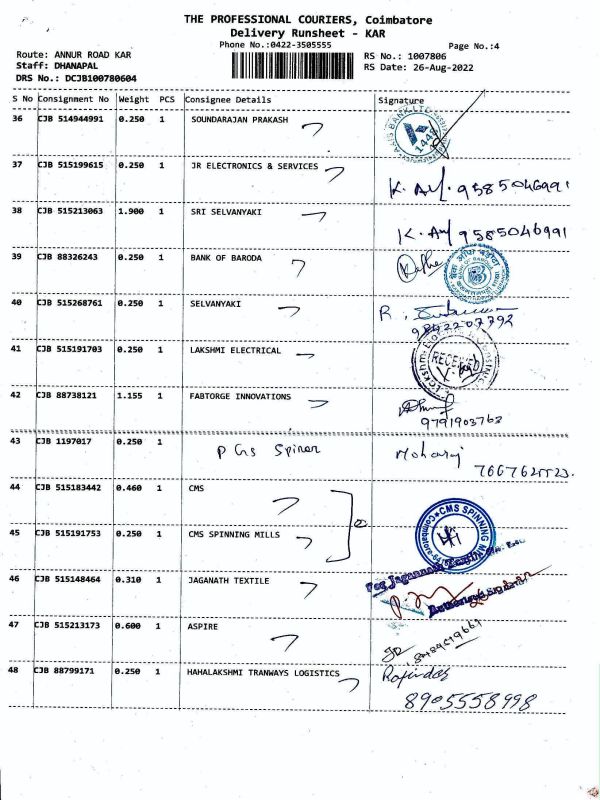 THE PROFESSIONAL COURIERS, Coimbatore
Delivery Runsheet - KAR
Phone No.:0422-3505555
Page No.:4
Route: ANNUR ROAD KAR
RS No.: 1007806
Staff: DHANAPAL
RS Date: 26-Aug-2022
DRS No.: DCJB100780604
S No Consignment No Weight PCS Consignee Details Signature
36 CJB 514944991 0.250 1 SOUNDARAJAN PRAKASH
37 CJB 515199615 0.250 1 JR ELECTRONICS & SERVICES
9585046991
38 CJB 515213063 1.900 1 SRI SELVANYAKI
9585046991
39 CJB 88326243 0.250 1 BANK OF BARODA
BANK OF BARODA
40 CJB 515268761 0.250 1 SELVANYAKI
41 CJB 515191703 0.250 1 LAKSHMI ELECTRICAL
RECEIVED
42 CJB 88738121 1.155 1 FABTORGE INNOVATIONS
9791903763
43 CJB 1197017 0.250 1 P Gs Spiner
44 CJB 515183442 0.460 1 CMS
45 CJB 515191753 0.250 1 CMS SPINNING MILLS
CMS SPINNING
46 CJB 515148464 0.310 1 JAGANATH TEXTILE
For Jagannath
47 CJB 515213173 0.600 1 ASPIRE
48 CJB 88799171 0.250 1 HAHALAKSHMI TRANWAYS LOGISTICS
8905558998